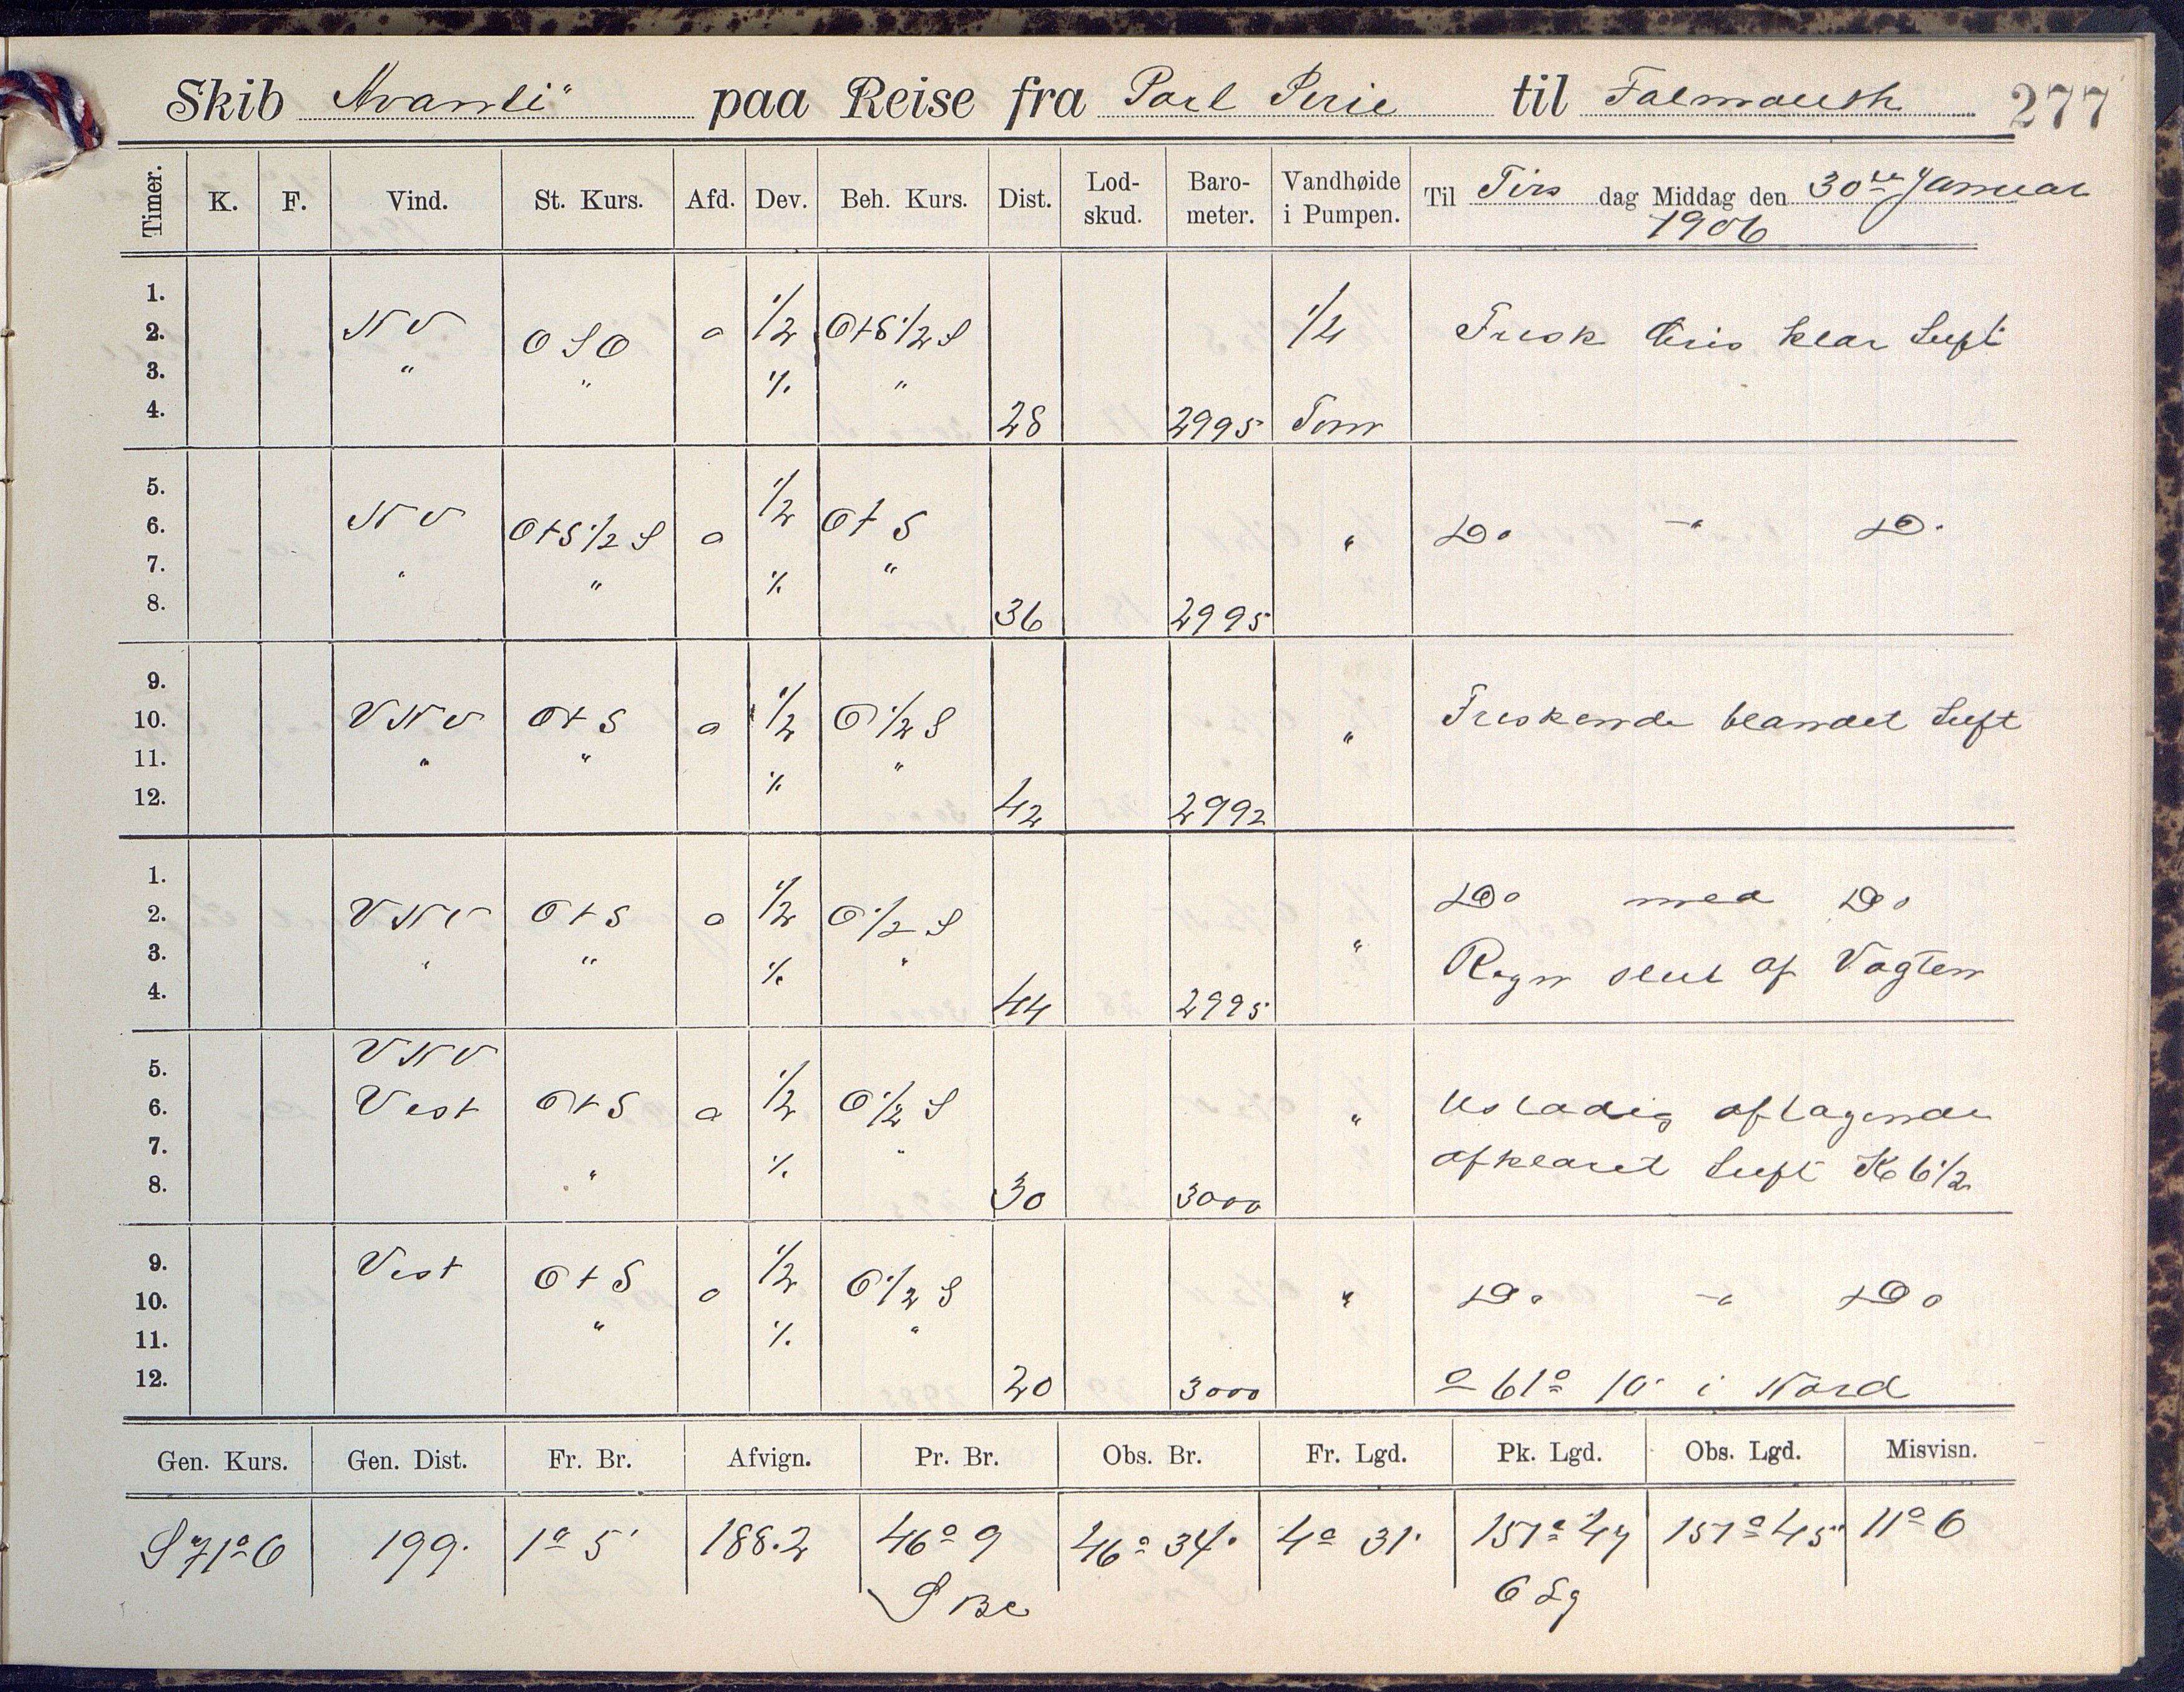 Skib Avanti" paa Reise fra Port Pirie til Falmouth 277
Timer. K. F. Vind. St. Kurs. Afd. Dev. Beh. Kurs. Dist. Lod-skud. Baro-meter. Vandhøide i Pumpen. Til Tirs dag Middag den 30te Januar
1906
1.
2. NV OSO o 1/2 OtS 1/2 S 1/2 Frisk Bris klar Luft
3. " " % "
4. 28 2995 Tom
5.
6. NV OtS 1/2 S o 1/2 Ot S " Do -" Do
7. " " % "
8. 36 2995
9.
10. VNV Ot S o 1/2 O 1/2 S " Friskende blandet Luft
11. " " % "
12. 42 2992
1. Do med Do
2. VNV Ot S o 1/2 O 1/2 S "
3. " " % " Regn slut af Vagten
4. 44 2995
5. VNV
6. Vest Ot S o 1/2 O 1/2 S " Ustadig aftagende
7. " % " afklaret Luft K 6 1/2
8. 30 3000
9. Vest
10. Ot S o 1/2 O 1/2 S " Do -" Do
11. " % "
12. 20 3000 o 61° 10' i Nord
Gen. Kurs. Gen. Dist. Fr. Br. Afvign. Pr. Br. Obs. Br. Fr. Lgd. Pk. Lgd. Obs. Lgd. Misvisn.
S 71° O 199. 1° 5' 188.2 46° 9 46° 34' 4° 31' 151° 47 151° 45" 11° O
S Be O Lg